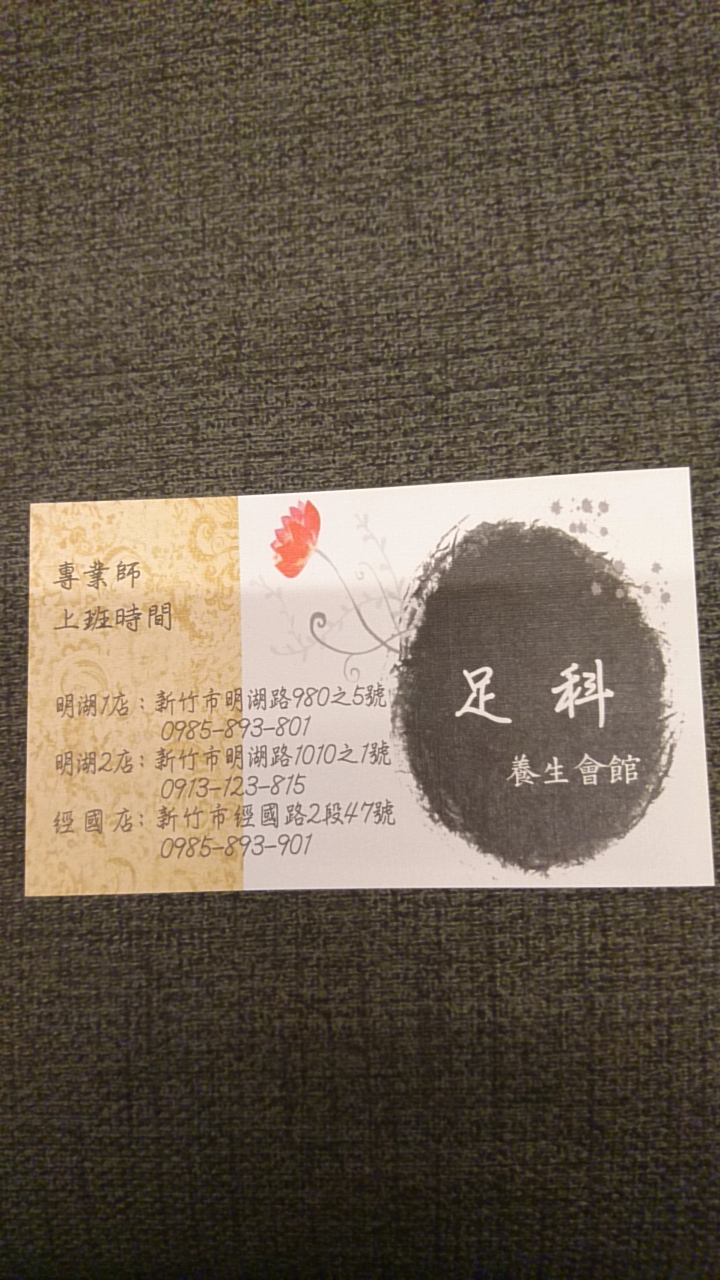 專業師
上班時間
明湖1店：新竹市明湖路980之5號
0985-893-801
明湖2店：新竹市明湖路1010之1號
0913-123-815
經國店：新竹市經國路2段47號
0985-893-901
足科
養生會館